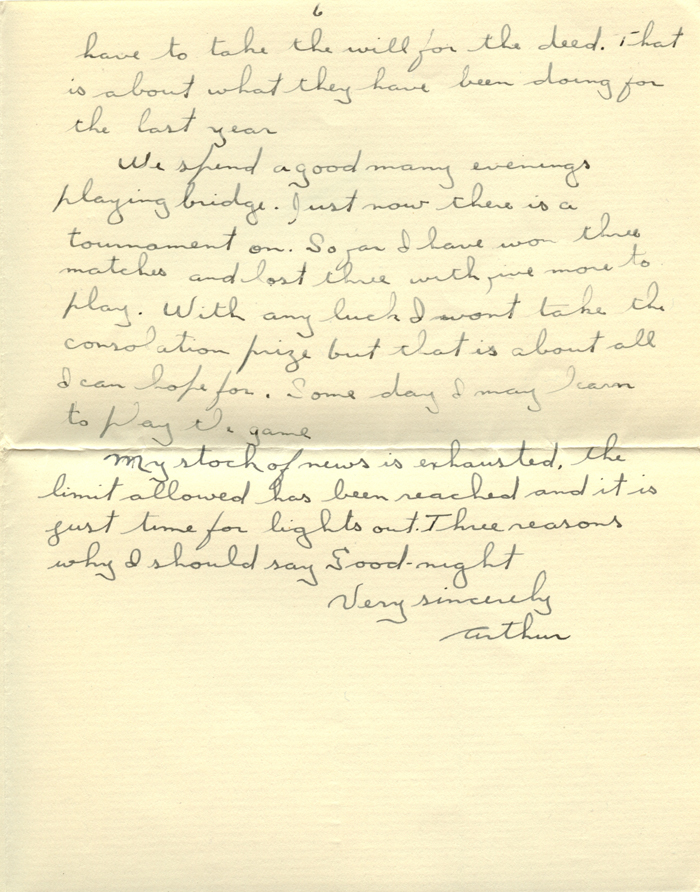 6
have to take the will for the deed. That
is about what they have been doing for
the last year
We spend a good many evenings
playing bridge. Just now there is a
tournament on. So far I have won three
matches and lost three with five more to
play. With any luck I wont take the
consolation prize but that is about all
I can hope for. Some day I may learn
to play the game
My stock of news is exhausted, the
limit allowed has been reached and it is
just time for lights out. Three reasons
why I should say Good-night
Very sincerely
Arthur